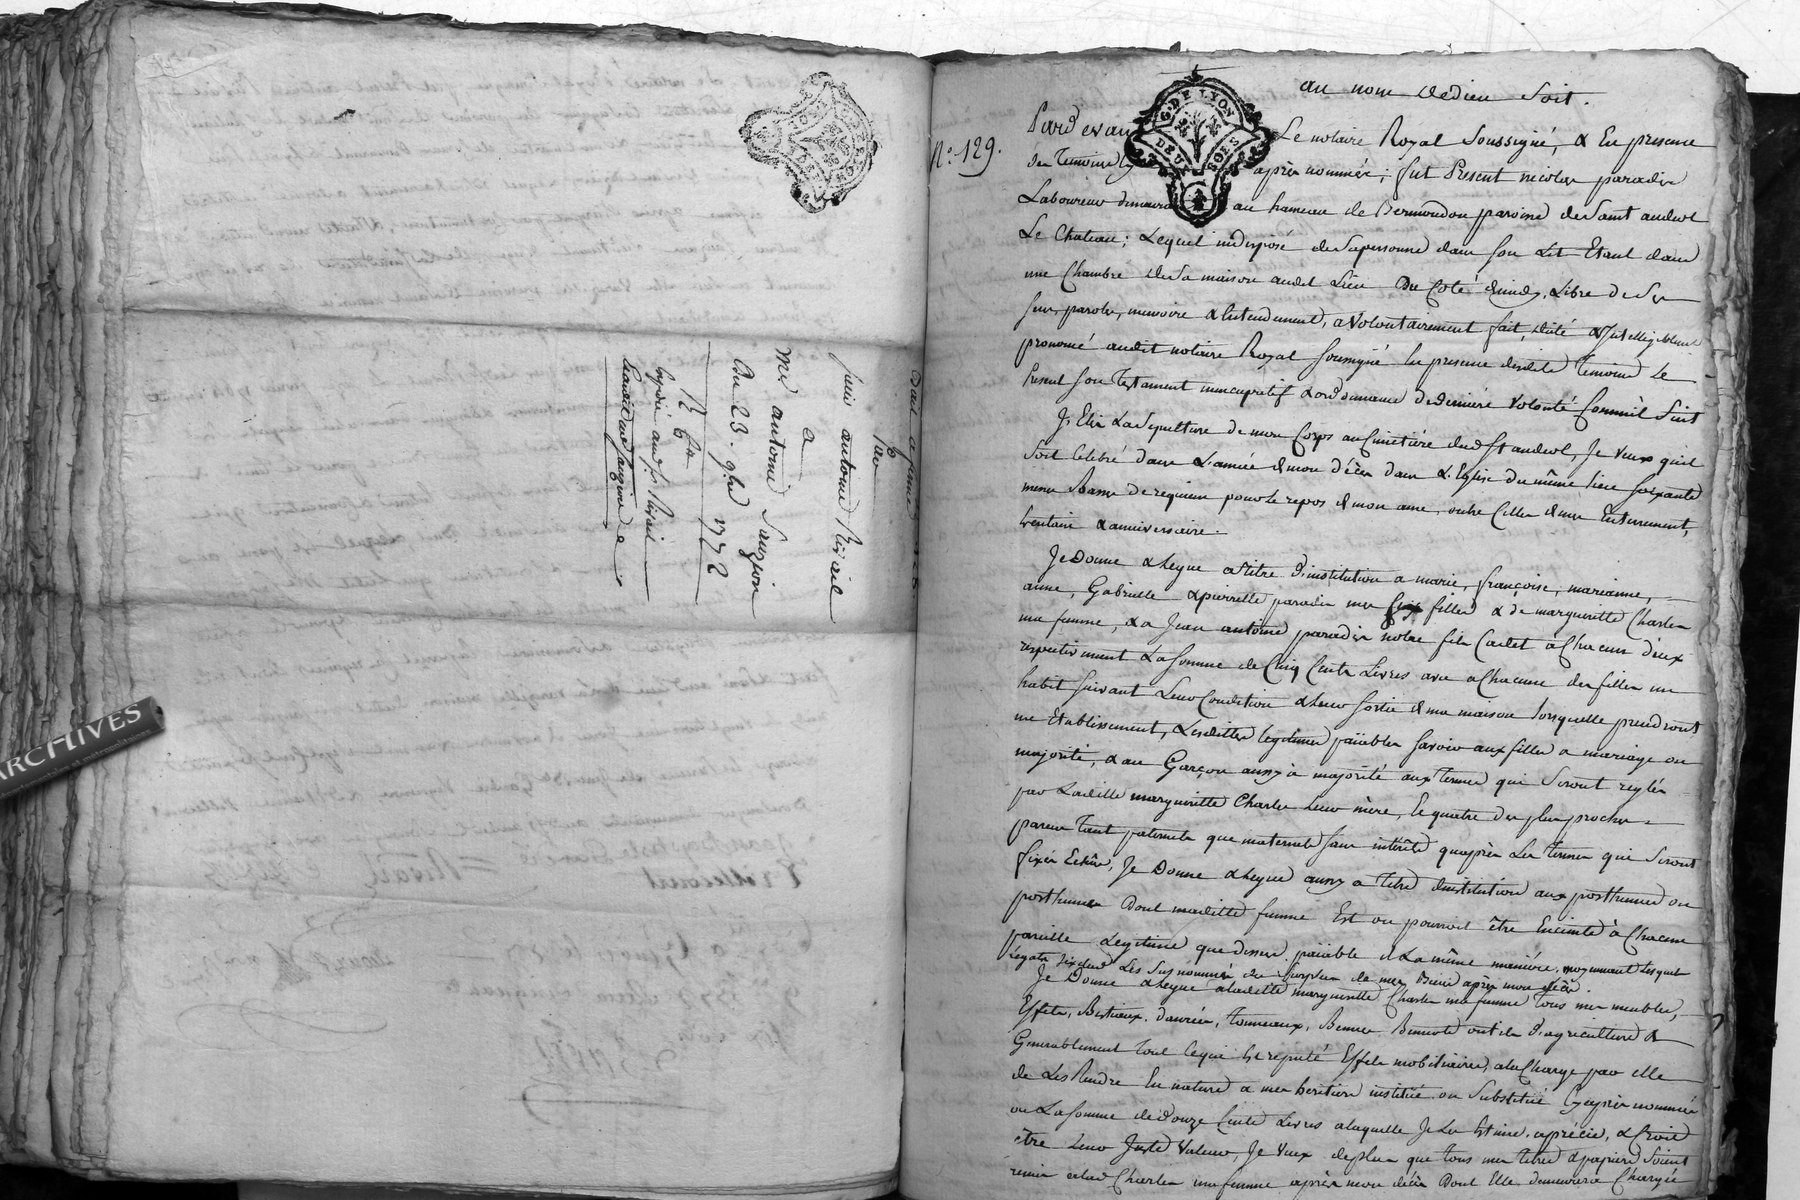 Bail a ferme
Par
Sieur antoine Rivail
a
Me antoine Sauzion
Du 23. 9bre 1772
ARCHIVES
N.° 129.
G. DE LYON
DEUX SOLS
au nom dedieu Soit.
Pardevant Le notaire Royal Soussigné, & En presence
des temoins Cy après nommés; fut Present nicolas paradis
Laboureur demeurant au hameau de Bermondon paroisse de Saint andeol
Le Chateau; Lequel indisposé de Sa personne dans Son Lit Etant dans
une Chambre de Sa maison audit Lieu Du Coté libre de Ses
Sens, parole, memoire & Entendement, a Volontairement fait, dicté & Intelligiblement
prononcé audit notaire Royal Soussigné En presence desdits Temoins Le
present Son Testament nuncupatif & ordonnance de derniere Volonté Comme Suit
Je Elis La Sepulture de mon Corps au Cimetière dud St andeol, Je veux quil
Soit Celebré dans L'année de mon décès dans L'Eglise du même Lieu Soixante
messes Basses de requiem pour le repos de mon ame, outre Celles de mes Enterrement,
trentain & anniversaire.
Je Donne & Legue a titre d'institution a marie, françoise, marianne,
anne, Gabrielle & pierrette paradis mes Six filles & de margueritte Charles
ma femme, & a Jean antoine paradis notre fils Cadet à Chacun d'eux
respectivement La Somme de Cinq Cents Livres avec a Chacune des filles un
habit Suivant Leur Condition & Leur Sortie de ma maison lorsquelle prendront
un Etablissement, Lesdittes legitimes païables Savoir aux filles a mariage ou
majorité, & au Garçon aussy à majorité aux termes qui Seront reglés
par Laditte margueritte Charles Leur mère, & quatre des plus proches
parens Tant paternels que maternels Sans intérêts quaprès Les termes qui Seront
fixés Echûs, Je Donne & Legue aussy a Titre d'institution aux posthumes ou
posthumes Dont maditte femme Est ou pourroit être Enceinte à Chacun
pareille Legitime que dessus païable de La même manière, moyennant lesquels
légats j'exclud Les Susnommés du Surplus de mes Biens après mon décès.
Je Donne & Legue a laditte margueritte Charles ma femme Tous mes meubles,
Effets, Bestiaux, danrées, Tonneaux, Bennes Bennots outils d'agriculture &
Generallement Tout Ce qui Est reputé Effets mobiliaires, ala Charge par elle
de Les Rendre En nature a mes heritiers institué ou Substitué Cy après nommés
ou La Somme de Douze Cents Livres a laquelle Je Les Estime, aprécie, & Crois
être Leur Juste Valeur, Je Veux de plus que tous mes titres & papiers Soient
remis alad Charles ma femme après mon décès Dont Elle demeurera Chargée